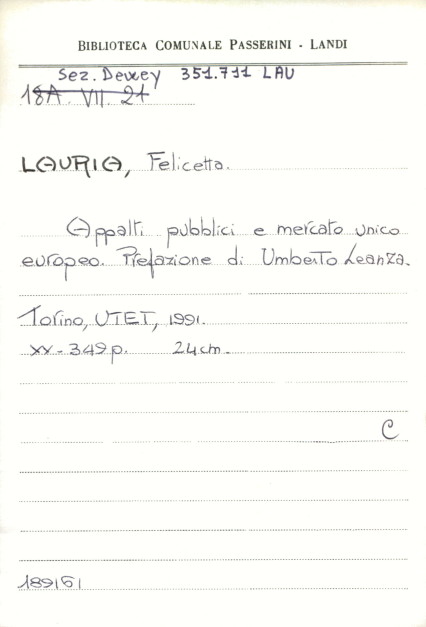 BIBLIOTECA COMUNALE PASSERINI - LANDI
Sez. Dewey 351.711 LAU
18A. VII. 21
LAURIA, Felicetta.
Appalti pubblici e mercato unico
europeo. Prefazione di Umberto Leanza.
Torino, UTET, 1991.
XX-349 p. 24 cm.
C
189161